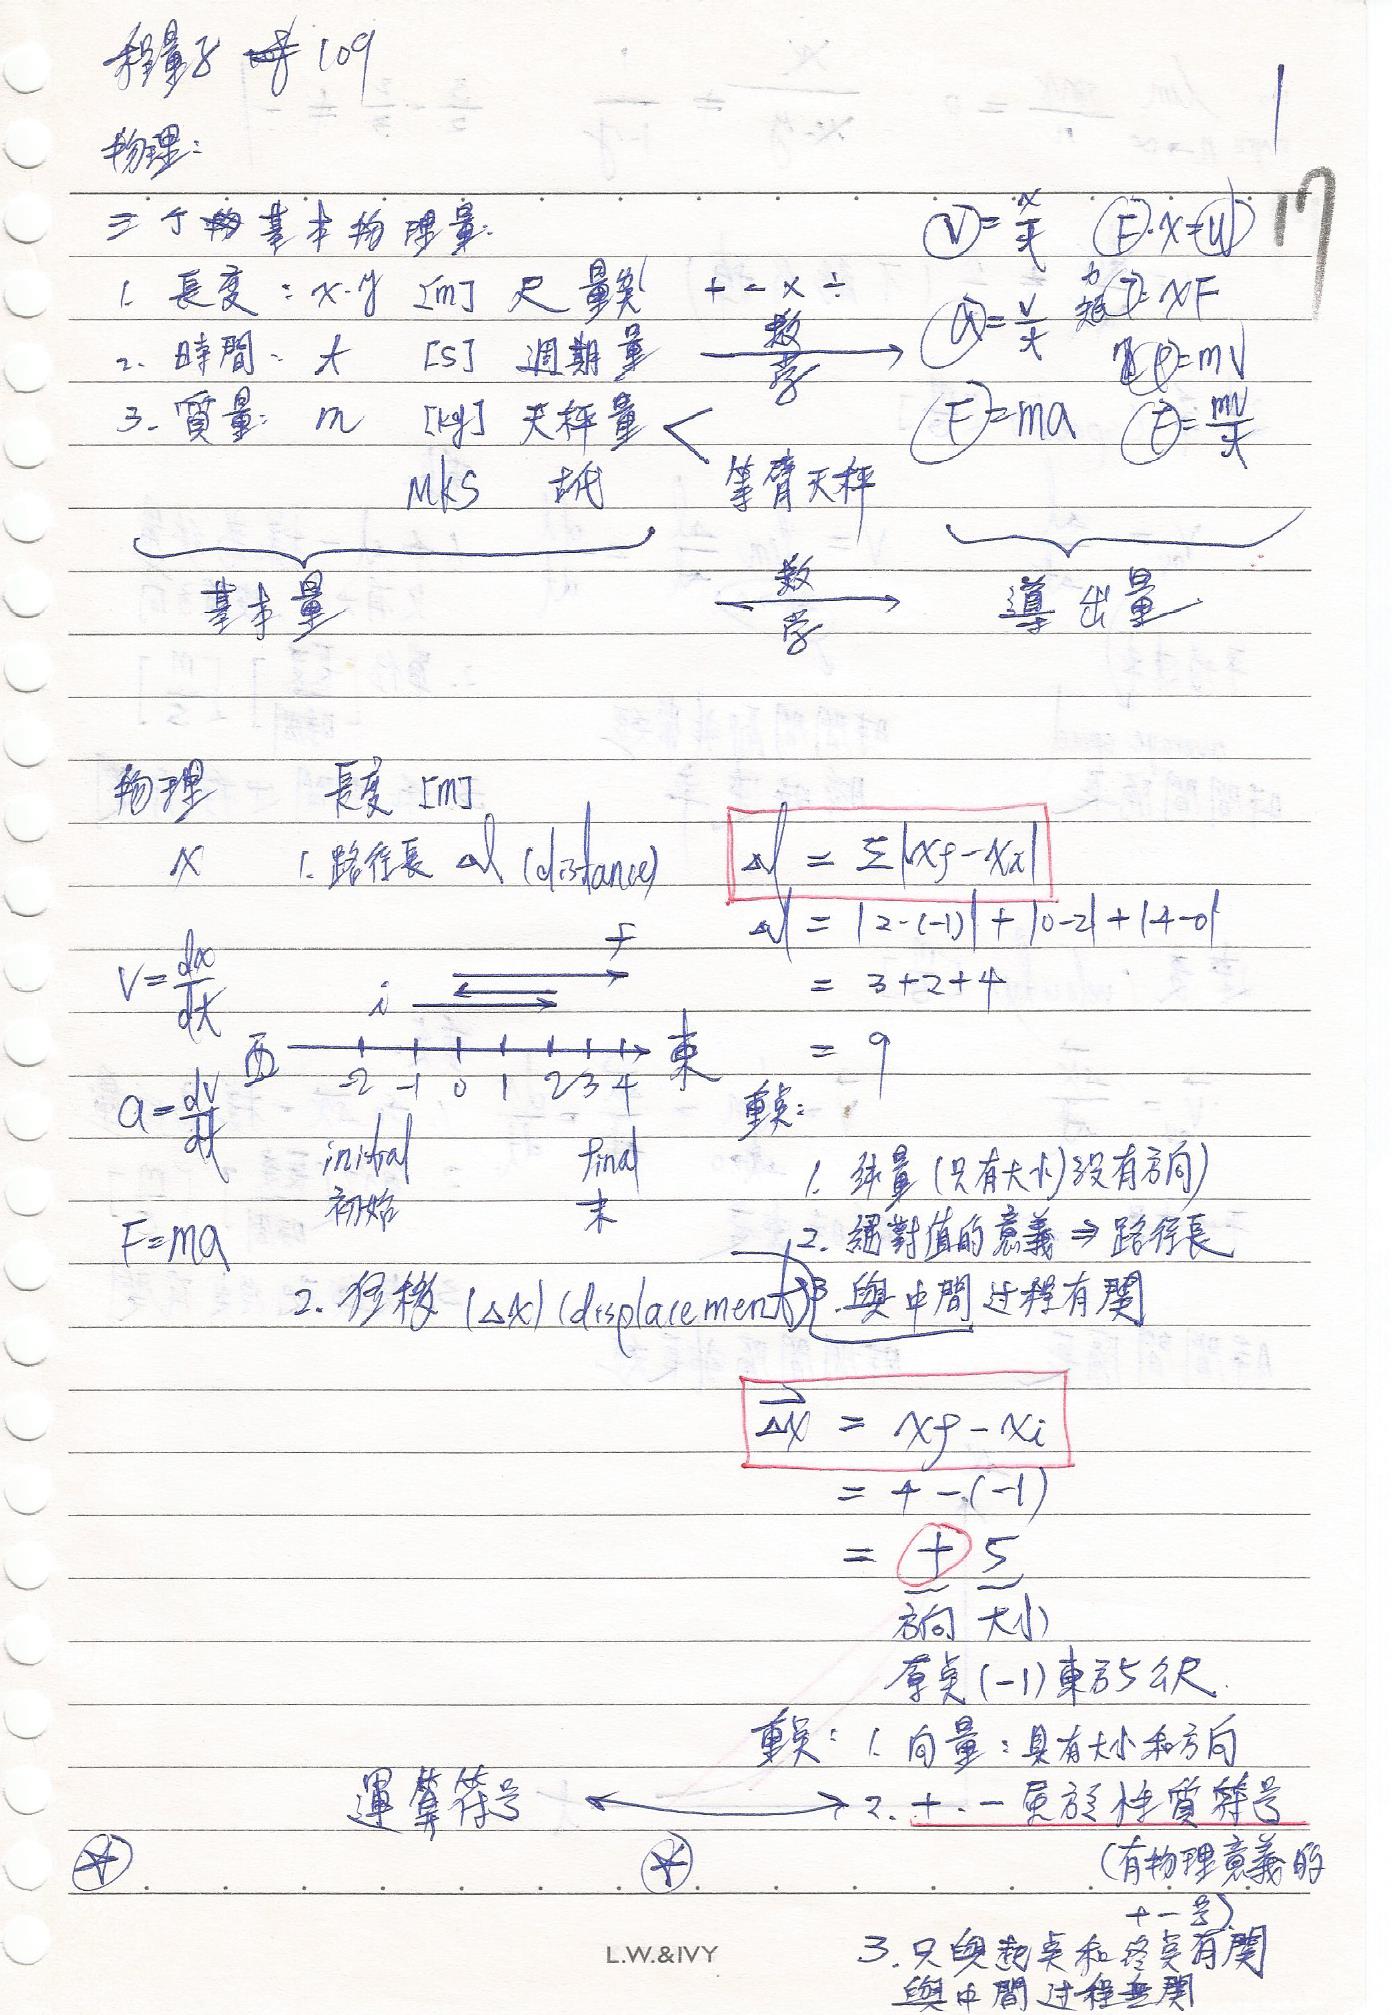 程量子 109
1
物理:
17
三个基本物理量.
V=x/t F·x=U
1. 長度:x.y [m] 尺 量 + - x ÷
力矩 τ=xF
a=v/t
2. 時間: t [s] 週期量 数学
P=mV
3. 質量: m [kg] 天秤量
F=ma F=mv/t
MKS 古代 等臂天秤
基本量 数学 導出量
物理 長度 [m]
x 1. 路徑長 Δl (distance) Δl = Σ|xf-xi|
Δl = |2-(-1)|+|0-2|+|4-0|
f
V=dx/dt = 3+2+4
i
西 東 = 9
-2 -1 0 1 2 3 4
a=dv/dt 重点:
initial final 1. 純量(只有大小)沒有方向)
初始 末
F=ma 2. 絕對值的意義⇒路徑長
2. (Δx) (displacement) 3. 與中間过程有関
Δx = xf-xi
= 4-(-1)
= + 5
方向 大小
原点(-1)東方5公尺.
重点: 1. 向量:具有大小和方向
運算符号 2. +.-屬於性質符号
(有物理意義的
+-号)
L.W.&IVY 3. 只與起点和終点有関
與中間过程無関